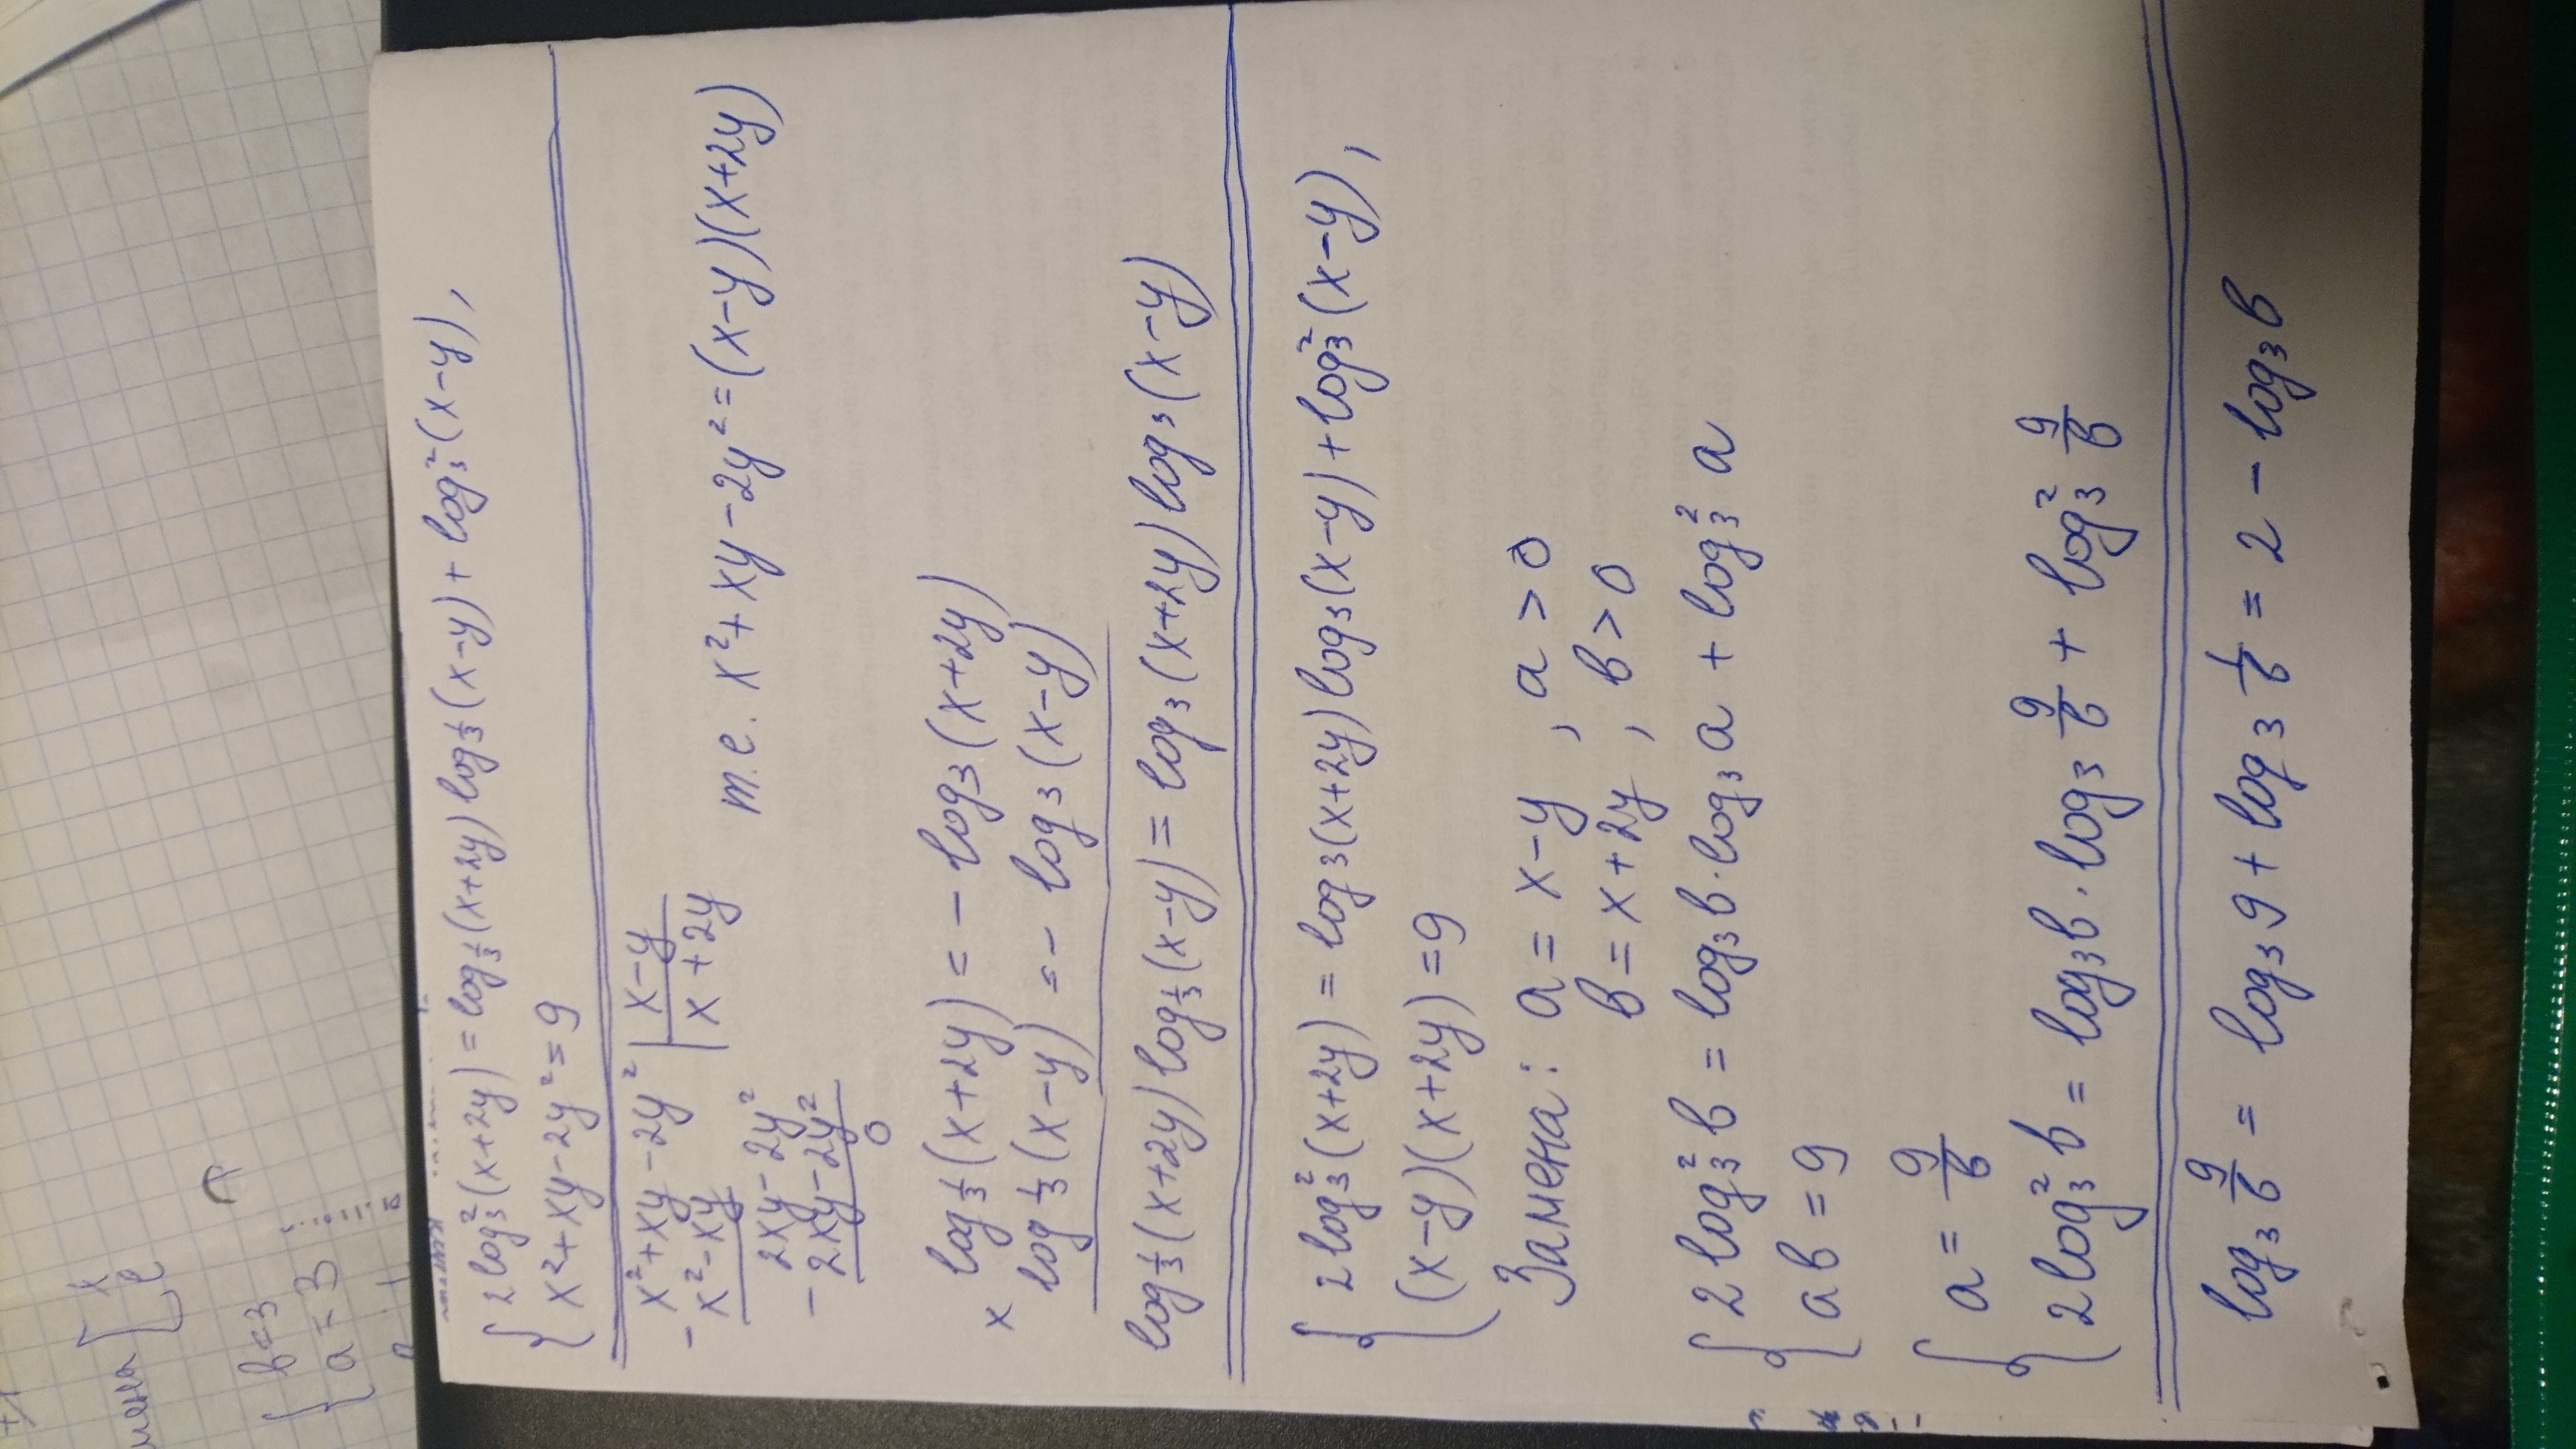 { 2log₃²(x+2y) = log_{1/3}(x+2y) log_{1/3}(x-y) + log₃²(x-y),
x²+xy-2y²=9
-x²+xy-2y² | x-y
x²-xy | x+2y
т.е. x²+xy-2y²=(x-y)(x+2y)
2xy-2y²
-2xy-2y²
0
log_{1/3}(x+2y) = -log₃(x+2y)
x
log_{1/3}(x-y) = -log₃(x-y)
log_{1/3}(x+2y) log_{1/3}(x-y) = log₃(x+2y) log₃(x-y)
{ 2log₃²(x+2y) = log₃(x+2y) log₃(x-y) + log₃²(x-y),
(x-y)(x+2y)=9
Замена: a = x-y, a>0
b = x+2y, b>0
{ 2log₃²b = log₃b·log₃a + log₃²a
ab=9
{ a = 9/b
2log₃²b = log₃b·log₃ 9/b + log₃² 9/b
log₃ 9/b = log₃9 + log₃ 1/b = 2 - log₃b
{ b=3
a=3